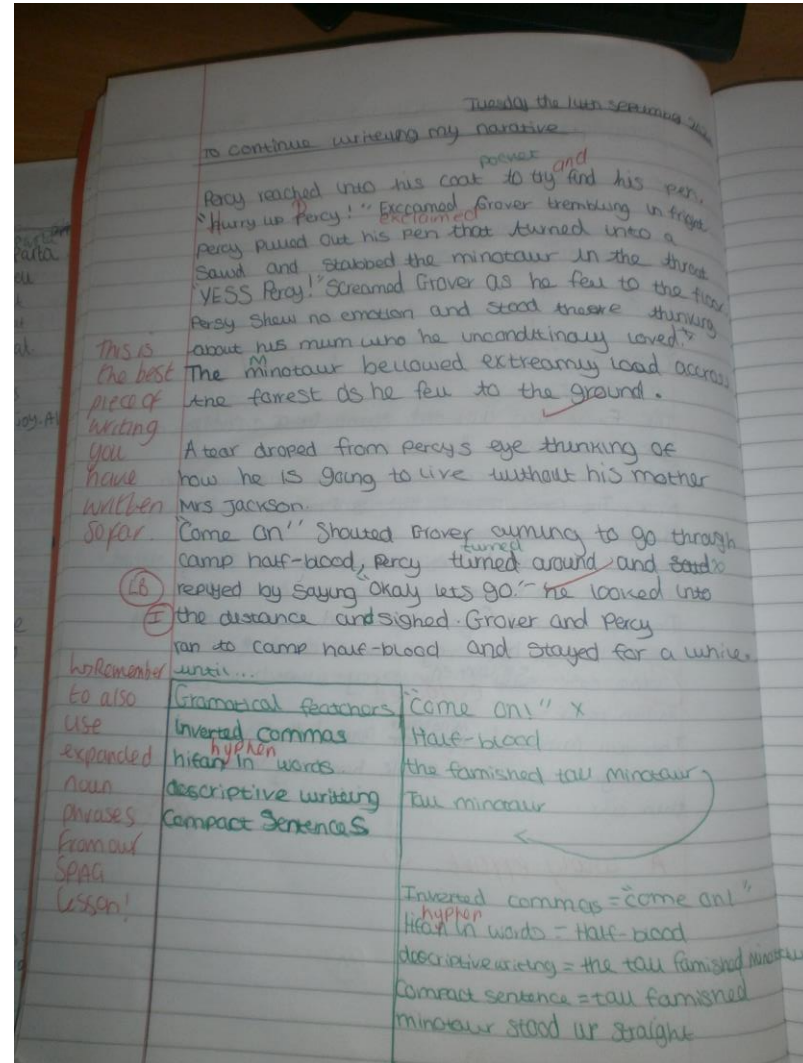 Tuesday the 14th
To continue writeing my narative
pocket and
Percy reached into his coat to try find his pen,
"Hurry up Percy!" Exccamed Grover trembling in fright
exclaimed
Percy pulled out his pen that turned into a
sawd and stabbed the minotaur in the throat
"YESS Percy!" Screamed Grover as he fell to the floor
Persy Shew no emotion and stood theore thinking
about his mum who he unconditinaly loved.
M
The minotaur bellowed extreamly load accross
the forrest as he fell to the ground.
A tear droped from percys eye thinking of
how he is going to live without his mother
Mrs Jackson.
"Come on" Shouted Grover ayming to go through
turned
camp half-blood, percy turned around and said
replyed by saying "Okay lets go." he looked into
the distance and signed. Grover and Percy
ran to camp half-blood and stayed for a while.
until...
This is
the best
piece of
writing
you
have
written
so far.
I
Remember
to also
use
expanded
noun
phrases
from our
SPAG
lesson!
Gramatical featchors
Inverted commas
hyphen
hifan in words
descriptive writeing
Compact Sentences
"Come on!" x
Half-blood
the famished tall minotaur
Tall minotaur
Inverted commas = "come on!"
hyphen
Hifan in words = Half-blood
descriptive writing = the tall famished minotaur
Compact sentence = tall famished
minotaur stood up straight